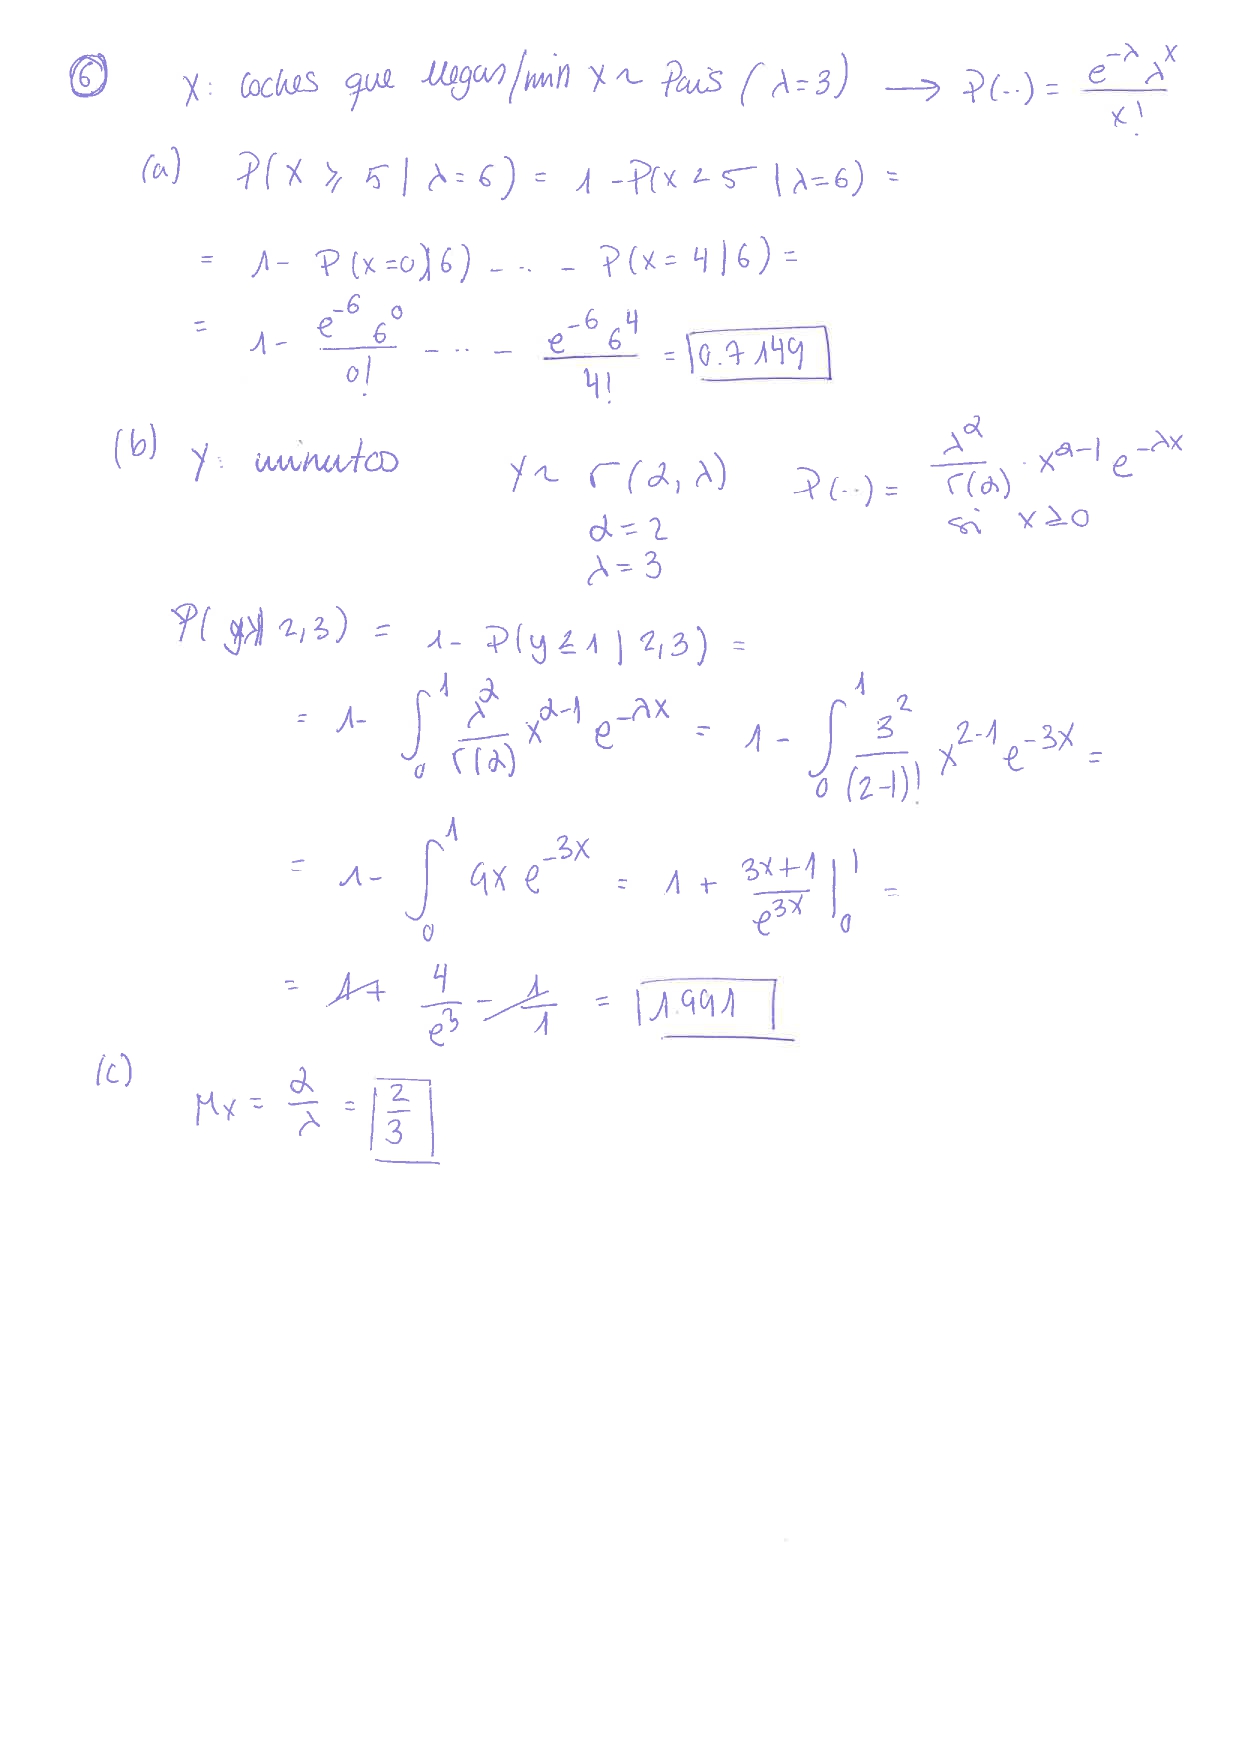 ⑥ X: coches que llegan/min X ~ Pois (λ=3) → P(..) = e^{-λ} λ^x / x!
(a) P(X ≥ 5 | λ=6) = 1 - P(X < 5 | λ=6) =
= 1 - P(X=0|6) - .. - P(X=4|6) =
= 1 - e^{-6} 6^0 / 0! - .. - e^{-6} 6^4 / 4! = 0.7149
(b) Y: minutos Y ~ Γ(α, λ) P(..) = λ^α / Γ(α) · x^{α-1} e^{-λx}
α = 2 si x ≥ 0
λ = 3
P( | 2,3) = 1 - P(y ≤ 1 | 2,3) =
= 1 - ∫_0^1 λ^α / Γ(α) x^{α-1} e^{-λx} = 1 - ∫_0^1 3^2 / (2-1)! x^{2-1} e^{-3x} =
= 1 - ∫_0^1 9x e^{-3x} = 1 + 3x+1 / e^{3x} |_0^1 =
= 1 + 4 / e^3 - 1 / 1 = 1.991
(c) μx = α / λ = 2 / 3